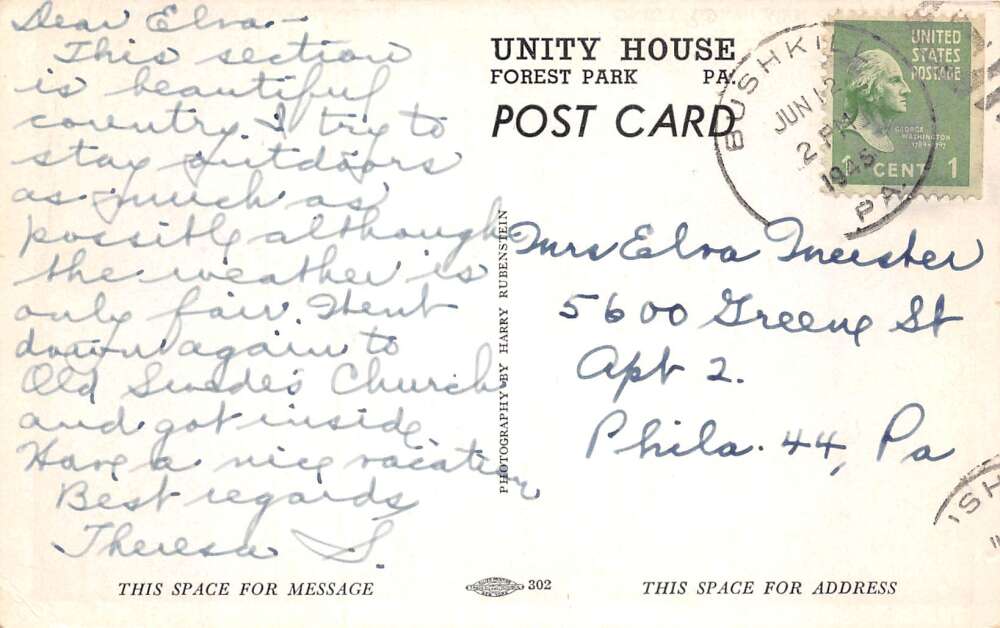 Dear Elva -
This section
is beautiful
country. I try to
stay outdoors
as much as
possible although
the weather is
only fair. Went
down again to
Old Swedes Church
and got inside
Have a nice vacation
Best regards
Theresa S.
THIS SPACE FOR MESSAGE
UNITY HOUSE
FOREST PARK PA.
POST CARD
PHOTOGRAPHY BY HARRY RUBENSTEIN
302
BUSHKILL
JUN 12
2 PM
1945
PA.
UNITED
STATES
POSTAGE
GEORGE
WASHINGTON
1 CENT 1
Mrs Elva Meister
5600 Greene St
Apt 2.
Phila. 44, Pa
ISH
THIS SPACE FOR ADDRESS